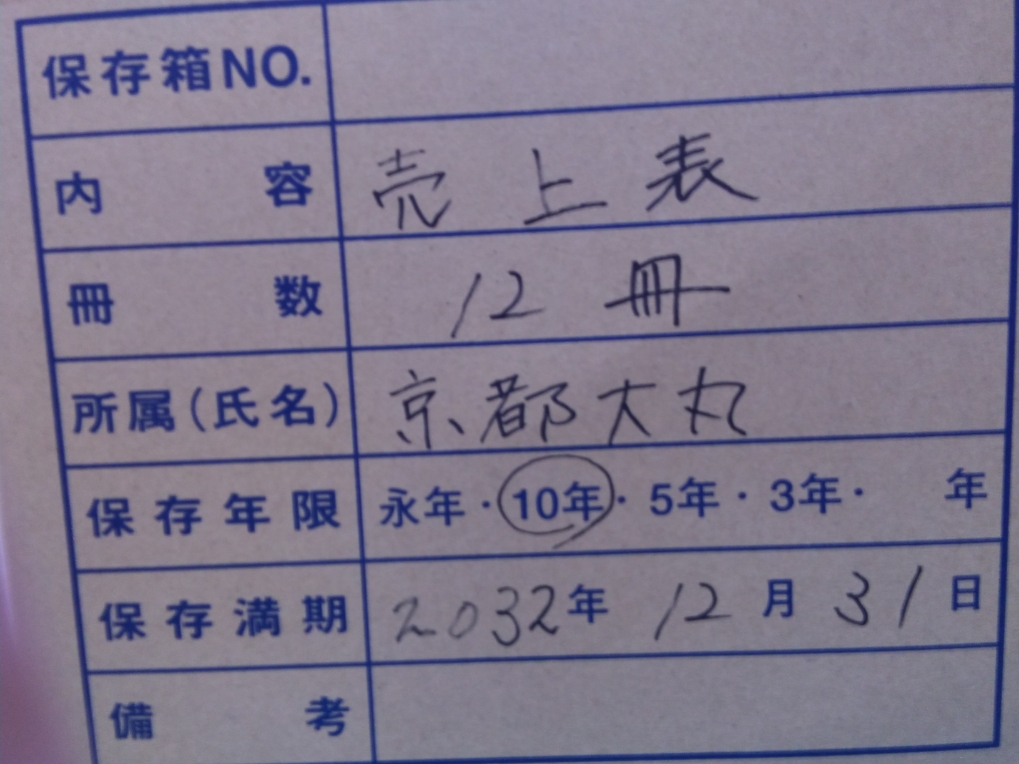 保存箱NO.
内容 売上表
冊数 12冊
所属(氏名) 京都大丸
保存年限 永年・10年・5年・3年・ 年
保存満期 2032年 12月 31日
備考